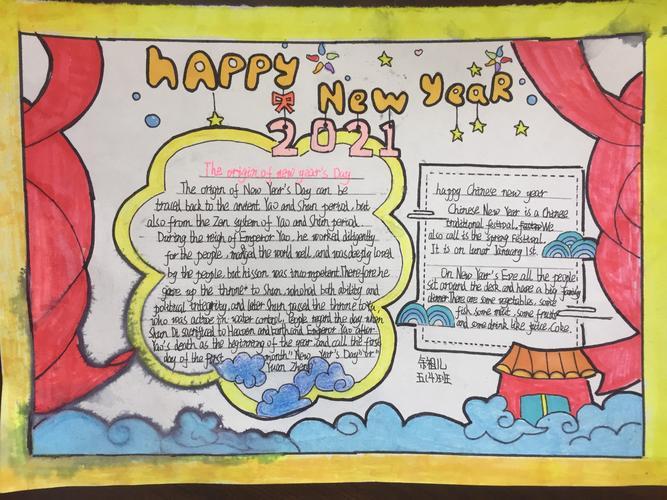 hAPPy New YeaR
2021
The origin of new year's Day
The origin of New Year's Day can be
travel back to the ancient Yao and Shun period, but
also from the Zen system of Yao and Shun period.
During the reign of Emperor Yao, he worked diligently
for the people, manged the world well, and was deeply loved
by the people, but his son was incompetent. Therefore he
gave up the throne to Shun, who had both ability and
political integrity, and later Shun passed the throne to Yu
who was active in water control. People regard the day when
Shun Di sacrificed to Heaven and Earth and Emperor Yao after
Yao's death as the beginning of the year and call the first
day of the first month "New Year's Day" "or"
Yuan Zheng
happy Chinese new year
Chinese New Year is a Chinese
traditional festival. We
also call is the Spring Festival.
It is on lunar January 1st.
On New Year's Eve all the people
sit around the desk and have a big family
dinner. There are some vegetables, some
fish, some meat, some fruits
and some drink like juice, Coke.
五(4)班